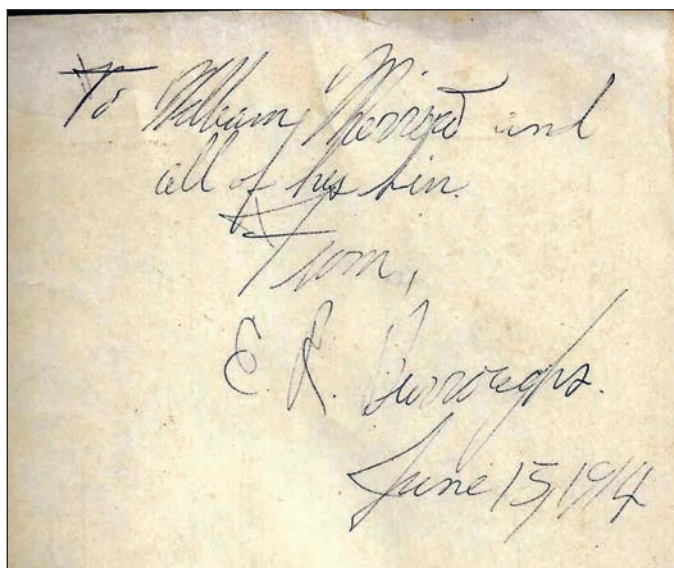 To William and
all of his kin.
From,
E. R. Burroughs.
June 15, 1914